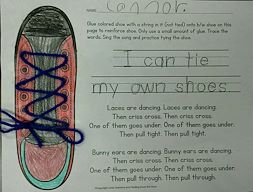 NAME Connor
Glue colored shoe with a string in it (not tied) onto b/w shoe on this
page to reinforce shoe. Only use a small amount of glue. Trace the
words. Sing the song and practice tying the shoe.
I can tie
my own shoes.
Laces are dancing. Laces are dancing.
Then criss cross. Then criss cross.
One of them goes under. One of them goes under.
Then pull tight. Then pull tight.
Bunny ears are dancing. Bunny ears are dancing.
Then criss cross. Then criss cross.
One of them goes under. One of them goes under.
Then pull through. Then pull through.